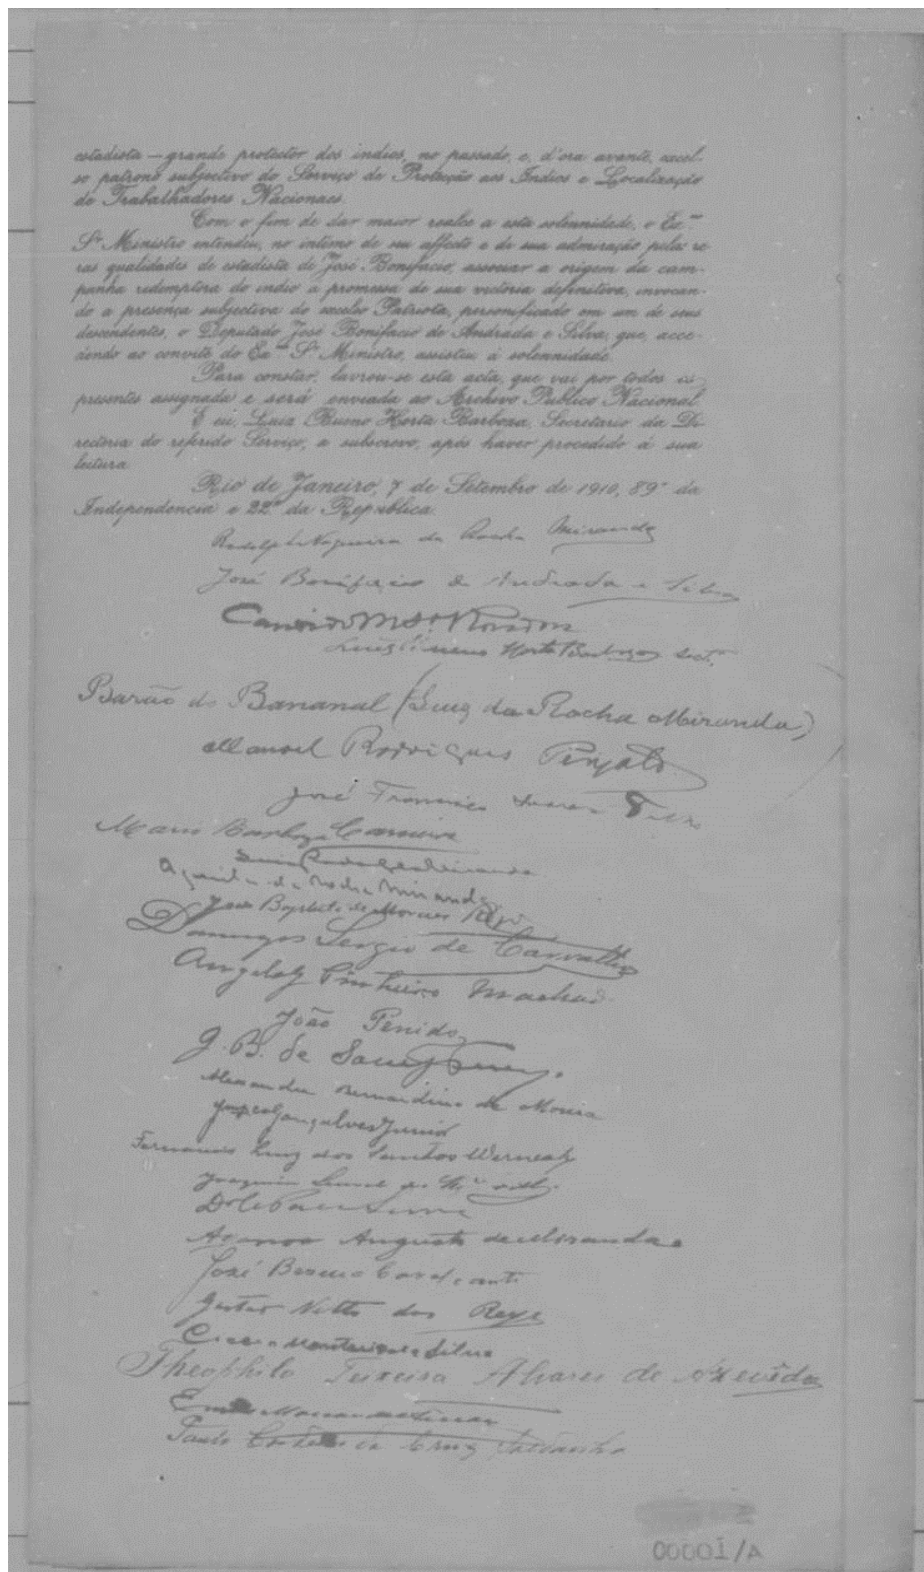 estadista — grande protector dos indios, no passado, e, d'ora avante, excel-
so patrono subjectivo do Serviço de Protecção aos Indios e Localização
de Trabalhadores Nacionaes.
Com o fim de dar maior realce a esta solennidade, o Ex.mo
Sr. Ministro entendeu, no intimo de seu affecto e de sua admiração pelas ra-
ras qualidades de estadista de José Bonifacio, associar a origem da cam-
panha redemptora do indio a promessa de sua victoria definitiva, invocan-
do a presença subjectiva do excelso Patriota, personificado em um de seus
descendentes, o Deputado José Bonifacio de Andrada e Silva, que, acce-
dendo ao convite do Ex.mo Sr. Ministro, assistiu á solennidade.
Para constar, lavrou-se esta acta, que vai por todos os
presentes assignada e será enviada ao Archivo Publico Nacional
E eu, Luiz Bueno Horta Barboza, Secretario da Di-
rectoria do referido Serviço, a subscrevo, após haver procedido á sua
leitura
Rio de Janeiro, 7 de Setembro de 1910, 89º da
Independencia e 22º da Republica.
Rodolpho Nogueira da Rocha Miranda
José Bonifacio de Andrada e Silva
Candido M S Rondon
Luiz Bueno Horta Barboza Sect.
Barão do Bananal (Luiz da Rocha Miranda)
Manoel Rodrigues Peixoto
José Francisco
Mario Barboza Carneiro
da Rocha Miranda
José Baptista de Moraes Rego
Domingos Sergio de Carvalho
Angelo Pinheiro Machado
João Penido
J. B. de
Alexandre Bernardino de Moura
Gonçalves Junior
Fernando Luiz dos Santos Werneck
Joaquim
Augusto de Miranda
José Bezerra Cavalcanti
Gastão Netto dos Reys
Cicero Monteiro e Silva
Theophilo Teixeira Alvares de Azevedo
Paulo Cruz Saldanha
00001/A